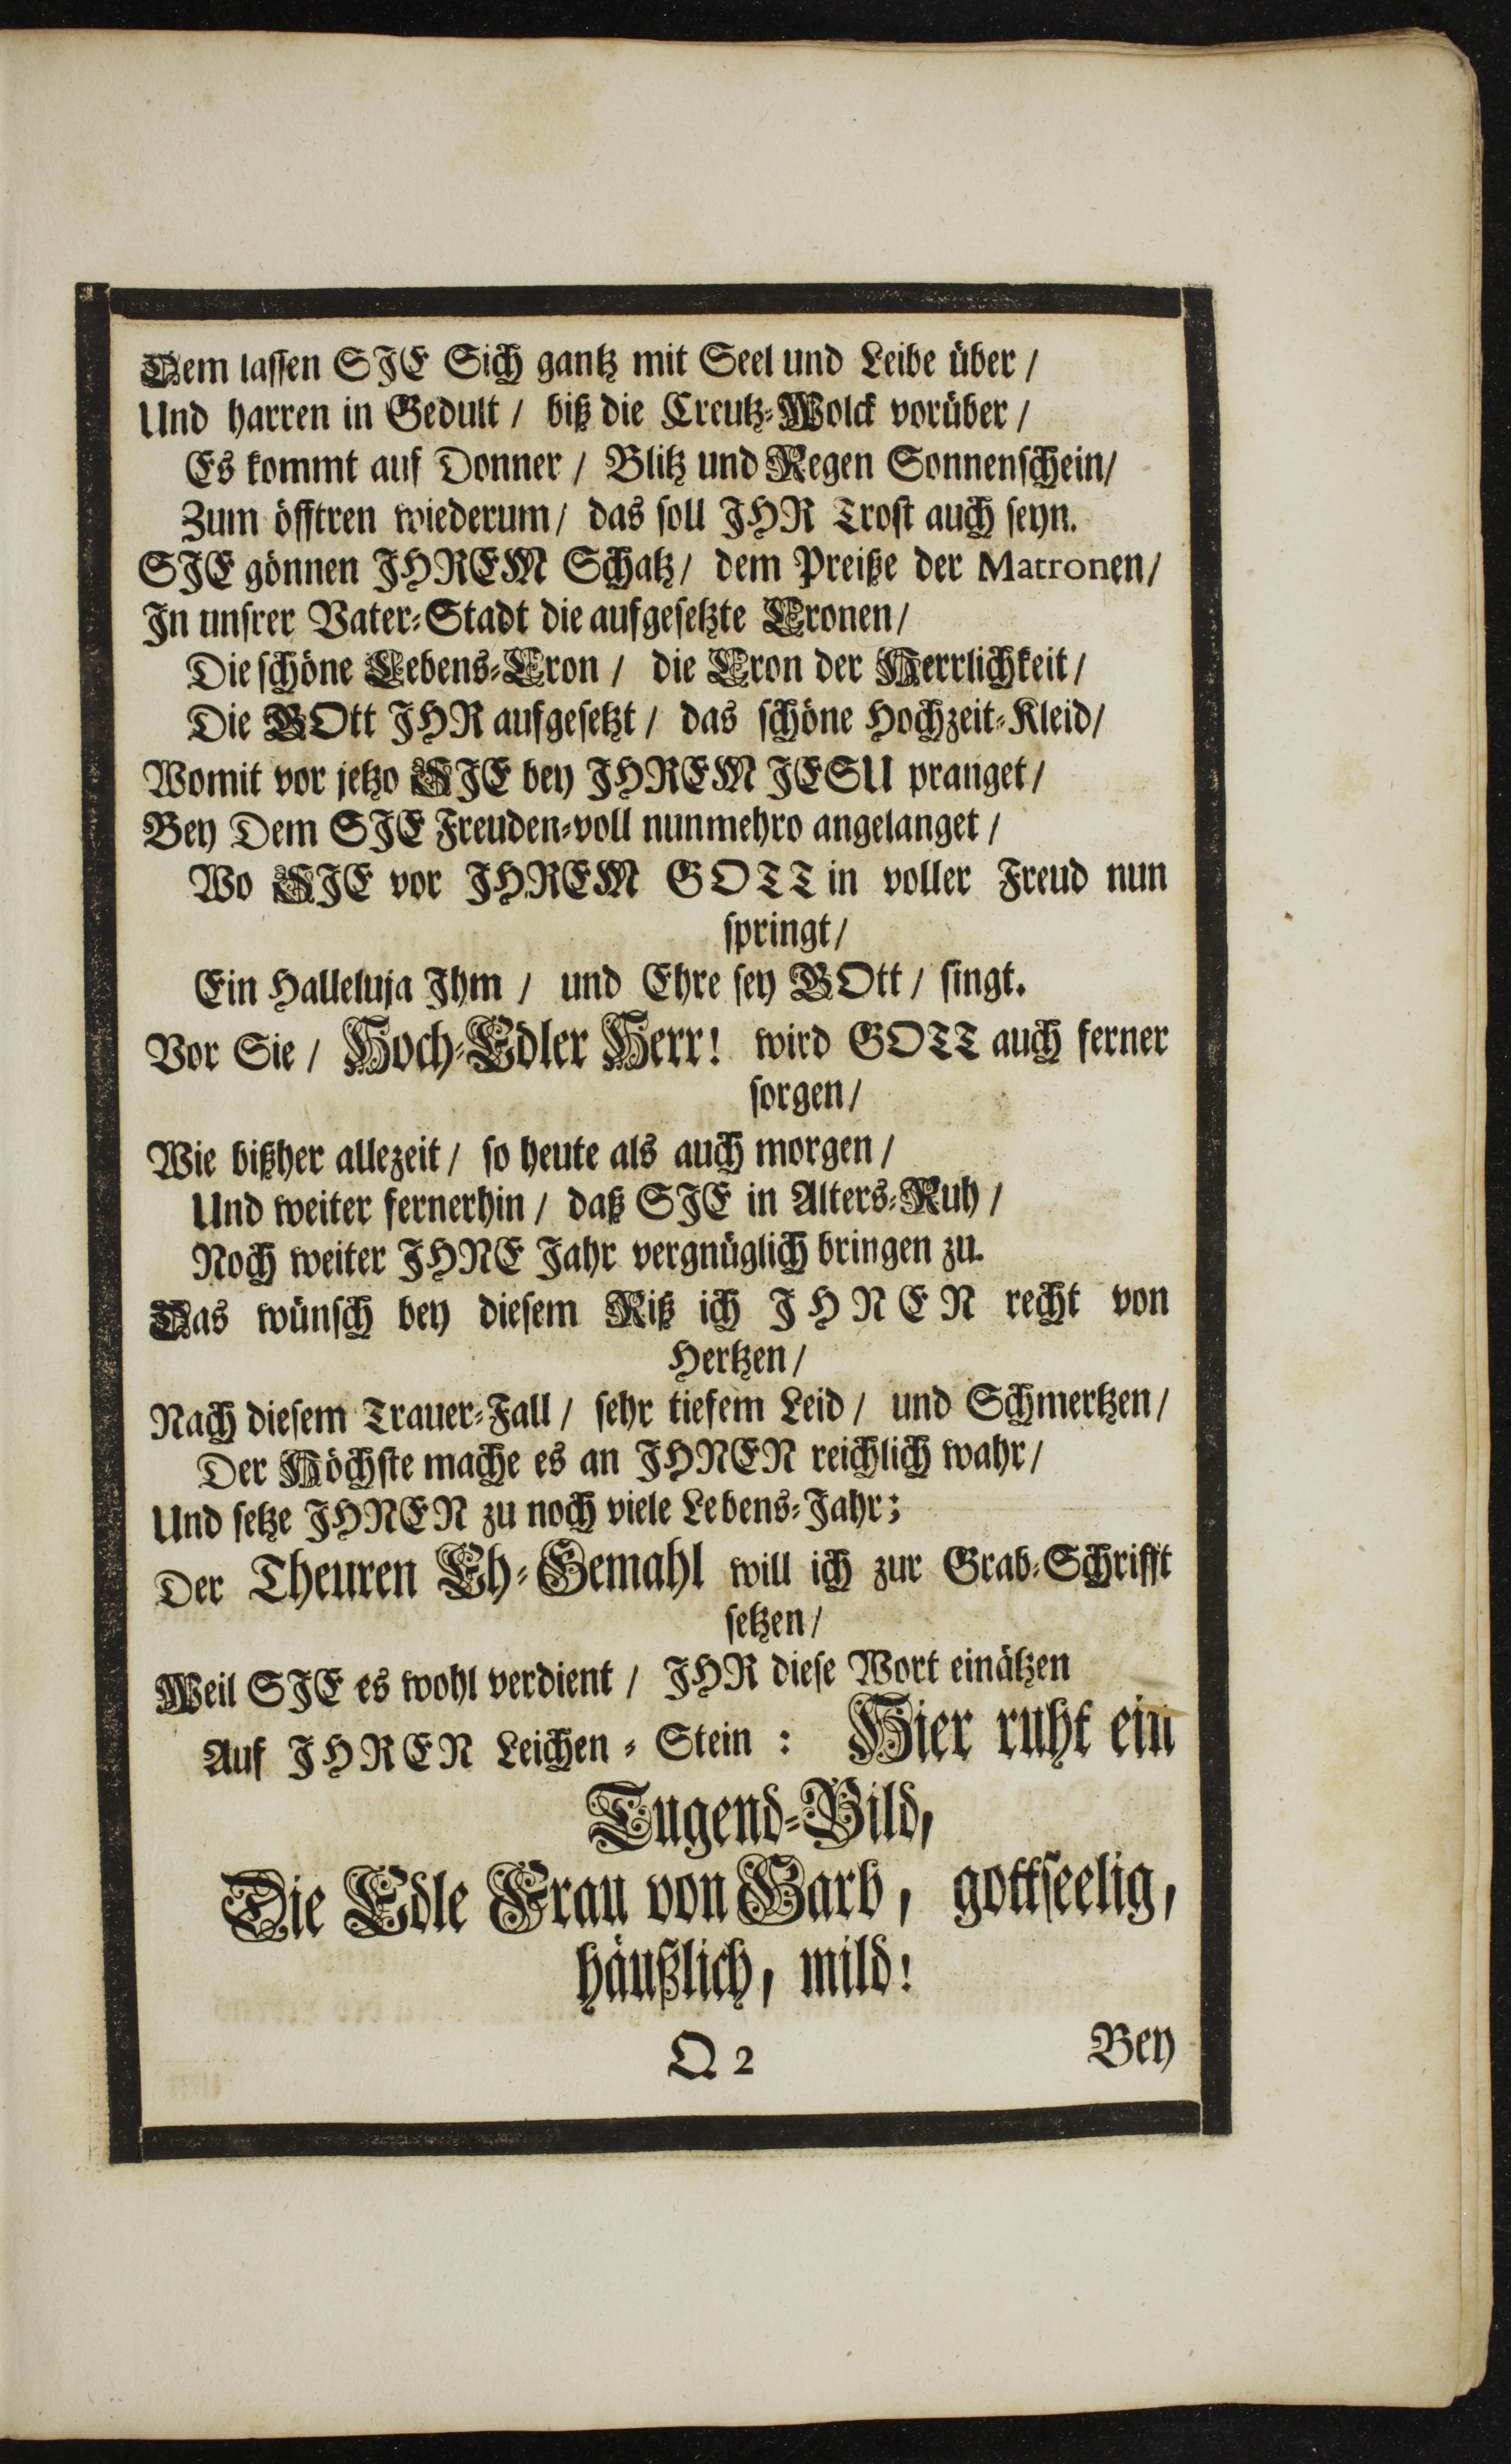 Dem lassen SIE Sich gantz mit Seel und Leibe über /
Und harren in Gedult / biß die Creutz-Wolck vorüber /
Es kommt auf Donner / Blitz und Regen Sonnenschein/
Zum öfftren wiederum/ das soll IHR Trost auch seyn.
SIE gönnen IHREM Schatz/ dem Preiße der Matronen/
In unsrer Vater-Stadt die aufgesetzte Cronen/
Die schöne Lebens-Cron / die Cron der Herrlichkeit/
Die GOtt IHR aufgesetzt / das schöne Hochzeit-Kleid/
Womit vor jetzo SIE bey IHREM JESU pranget/
Bey Dem SIE Freuden-voll nunmehro angelanget /
Wo SIE vor IHREM GOTT in voller Freud nun
springt/
Ein Halleluja Ihm / und Ehre sey GOtt / singt.
Vor Sie / Hoch-Edler Herr! wird GOTT auch ferner
sorgen/
Wie bißher allezeit / so heute als auch morgen /
Und weiter fernerhin / daß SIE in Alters-Ruh /
Noch weiter IHNE Jahr vergnüglich bringen zu.
Das wünsch bey diesem Riß ich IHNEN recht von
Hertzen/
Nach diesem Trauer-Fall / sehr tiefem Leid / und Schmertzen/
Der Höchste mache es an IHNEN reichlich wahr/
Und setze IHNEN zu noch viele Lebens-Jahr;
Der Theuren Eh-Gemahl will ich zur Grab-Schrifft
setzen/
Weil SIE es wohl verdient / IHR diese Wort einätzen
Auf IHREN Leichen-Stein : Hier ruht ein
Tugend-Bild,
Die Edle Frau von Garb, gottseelig,
häußlich, mild!
Q 2
Bey